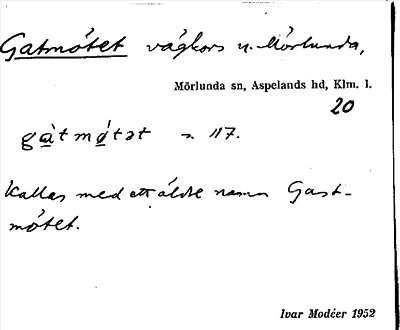 Gatmötet vägkors n. Mörlunda,
Mörlunda sn, Aspelands hd, Klm. l.
20
gàtmǿtət s. 117.
Kallas med ett äldre namn Gast-
mötet.
Ivar Modéer 1952